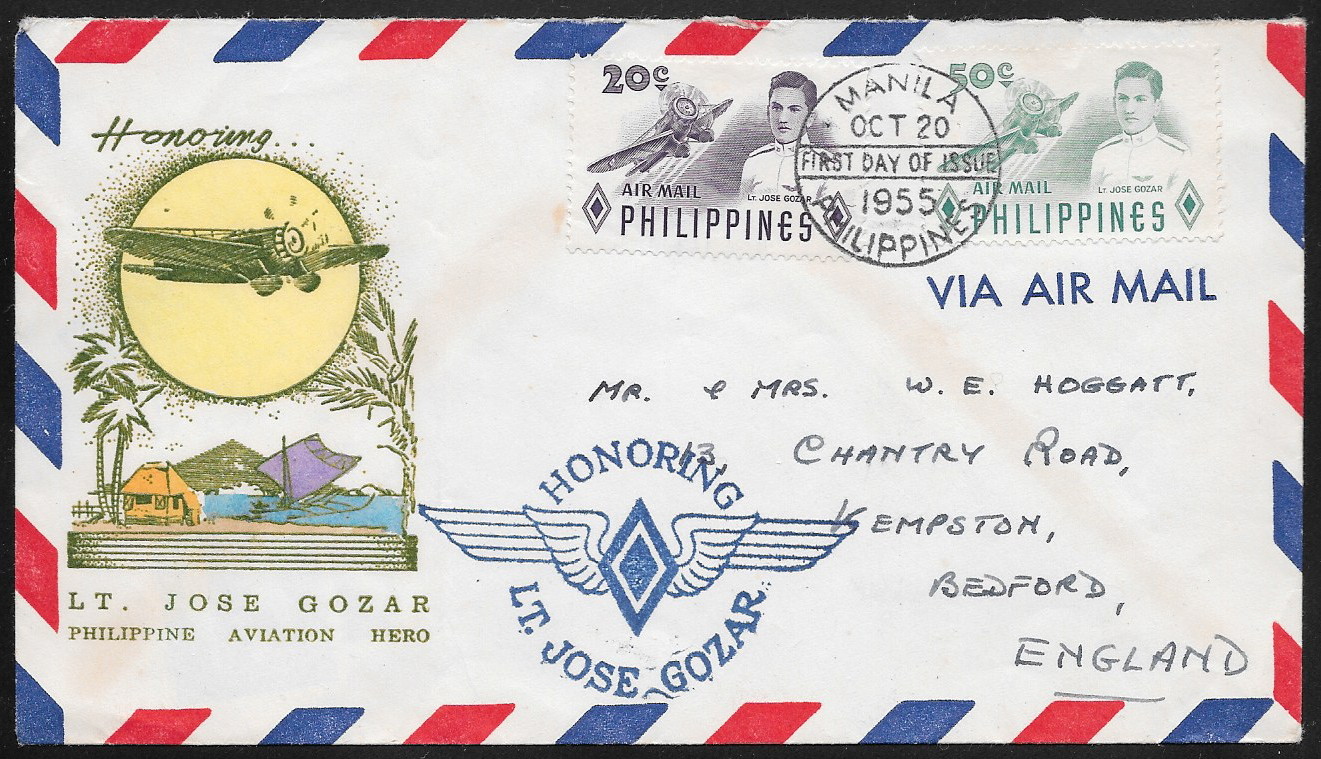 Honoring...
LT. JOSE GOZAR
PHILIPPINE AVIATION HERO
20c
AIR MAIL
LT. JOSE GOZAR
PHILIPPINES
50c
AIR MAIL
LT. JOSE GOZAR
PHILIPPINES
MANILA
OCT 20
FIRST DAY OF ISSUE
1955
PHILIPPINES
VIA AIR MAIL
MR. & MRS. W. E. HOGGATT,
13, CHANTRY ROAD,
KEMPSTON,
BEDFORD,
ENGLAND
HONORING
LT. JOSE GOZAR